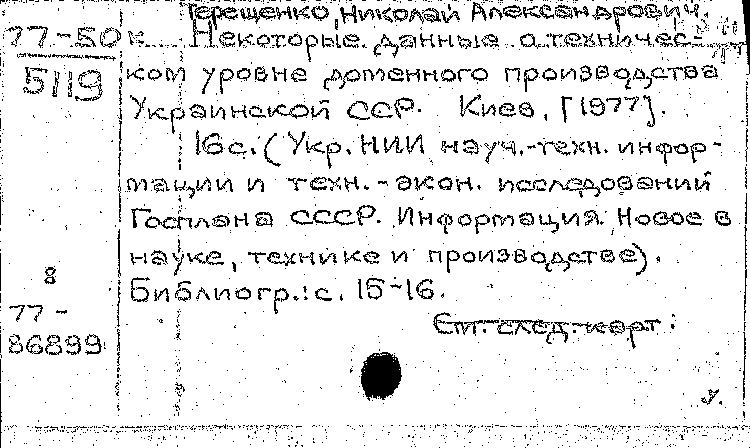 Терещенко, Николай Александрович.
77-50к Некоторые данные о техничес-
5119 ком уровне доменного производства
Украинской ССР. Киев, [1977].
16с. (Укр. НИИ науч.-техн. инфор-
мации и техн.-экон. исследований
Госплана СССР. Информация. Новое в
науке, технике и производстве).
8 Библиогр.: с. 15-16.
77-
86899 См. след. карт.
У.